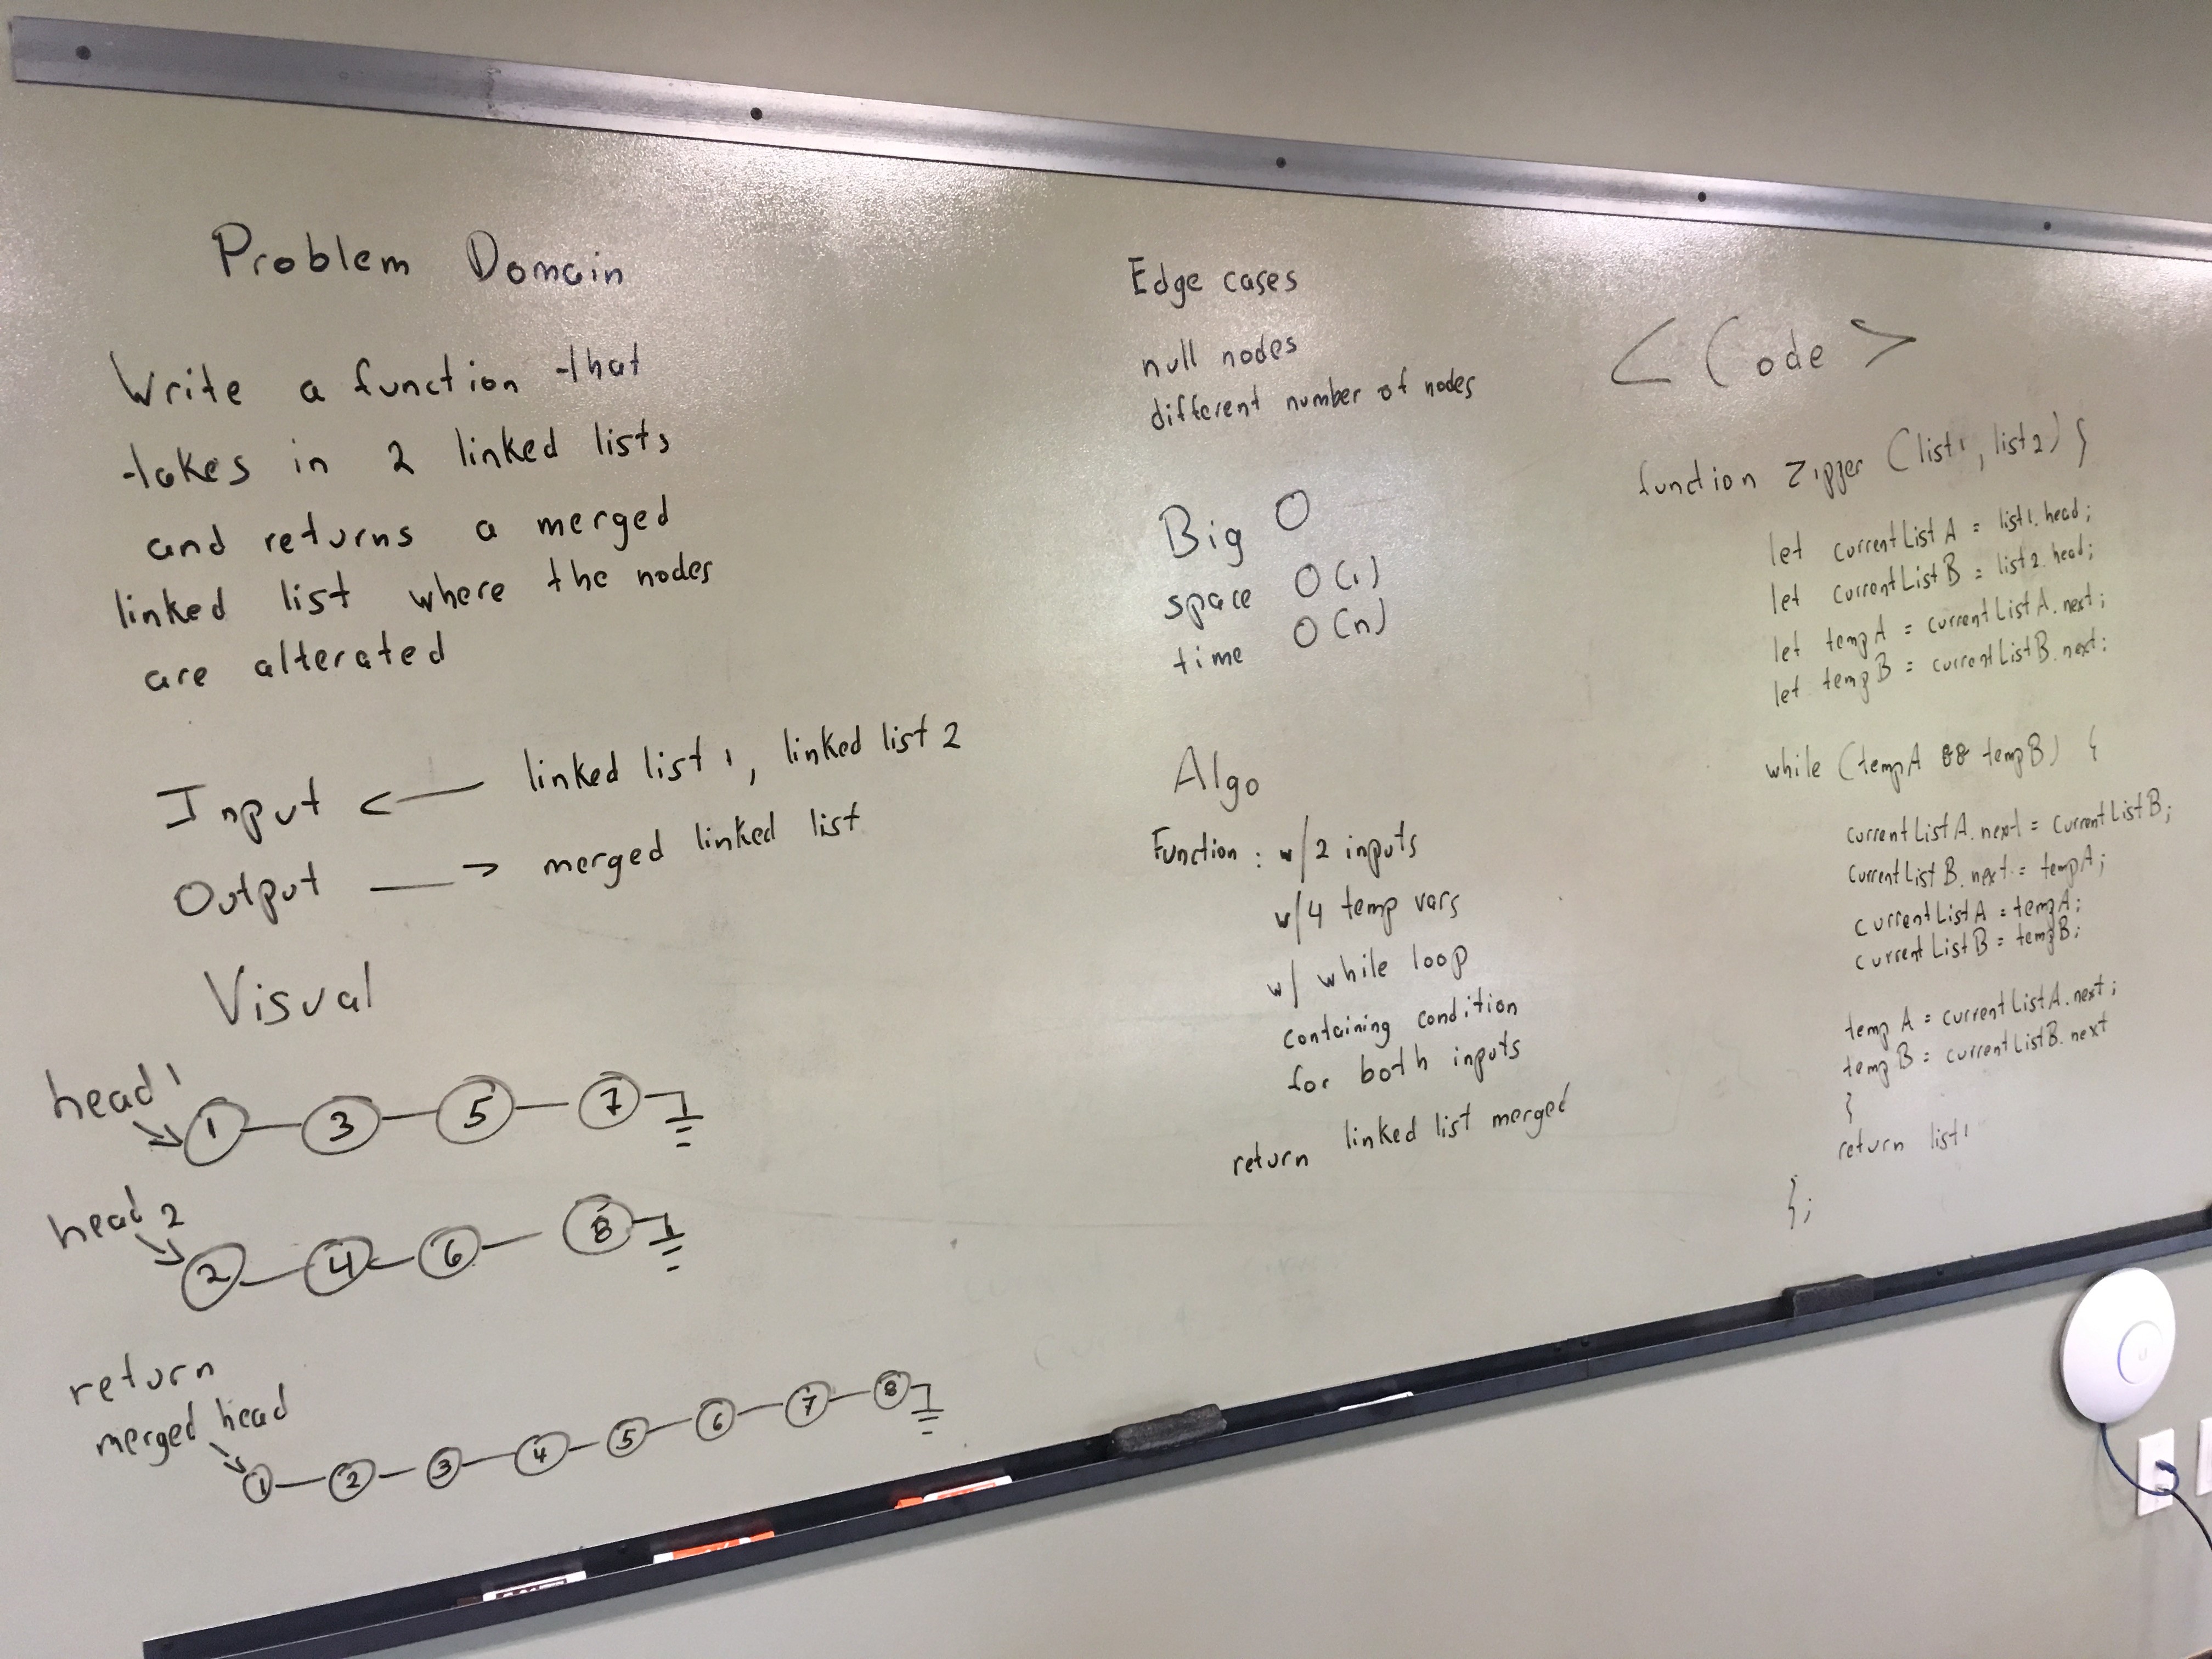 Problem Domain
Write a function that
takes in 2 linked lists
and returns a merged
linked list where the nodes
are alterated
Input <— linked list 1, linked list 2
Output —> merged linked list
Visual
head 1
1 3 5 7
head 2
2 4 6 8
return
merged head
1 2 3 4 5 6 7 8
Edge cases
null nodes
different number of nodes
Big O
space O(1)
time O(n)
Algo
Function : w/2 inputs
w/4 temp vars
w/ while loop
containing condition
for both inputs
return linked list merged
<Code>
function Zipper (list1, list2) {
let currentListA = list1.head;
let currentListB = list2.head;
let tempA = currentListA.next;
let tempB = currentListB.next;
while (tempA && tempB) {
currentListA.next = currentListB;
currentListB.next = tempA;
currentListA = tempA;
currentListB = tempB;
tempA = currentListA.next;
tempB = currentListB.next
}
return list1
};